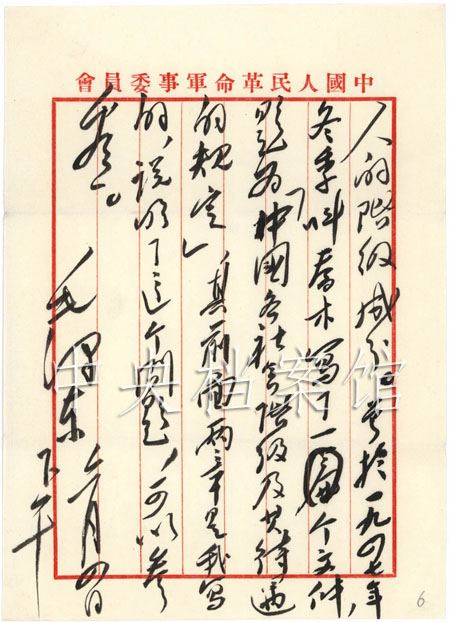 中國人民革命軍事委員會
人的階级成分。曾於一九四七年
冬季叫喬木寫了一個文件,
題为「中國各社会階级及其待遇
的规定」其前面兩章是我寫
的,说明了这个問题,可以参
看。
毛澤东
六月四日
下午
中央档案馆
6